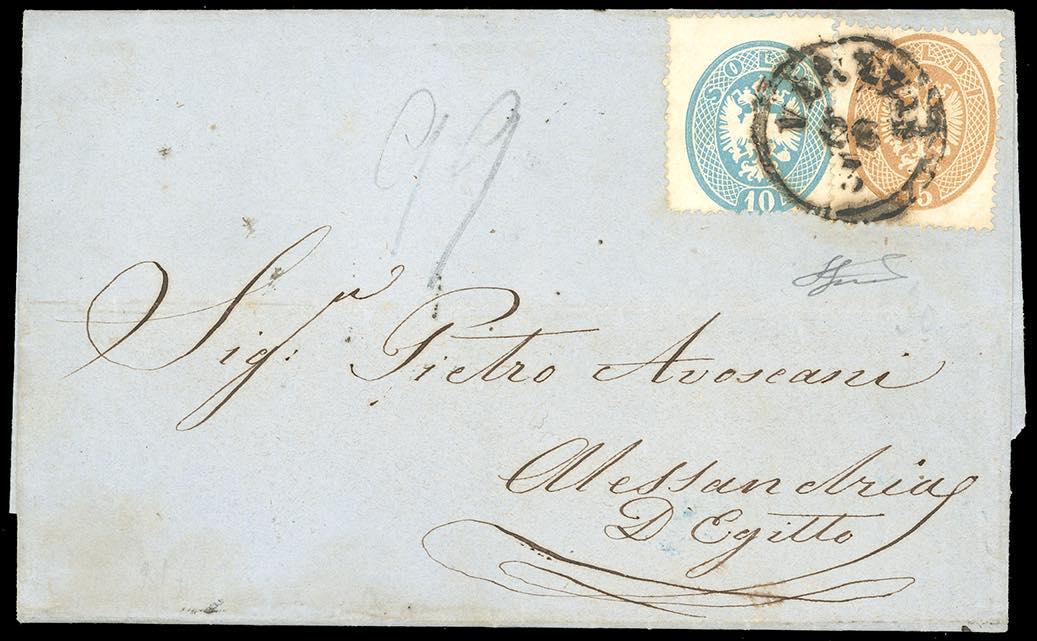 SOLDI
10
SOLDI
15
VENEZIA
99
Sig.r Pietro Avoscani
Alessandria
D Egitto